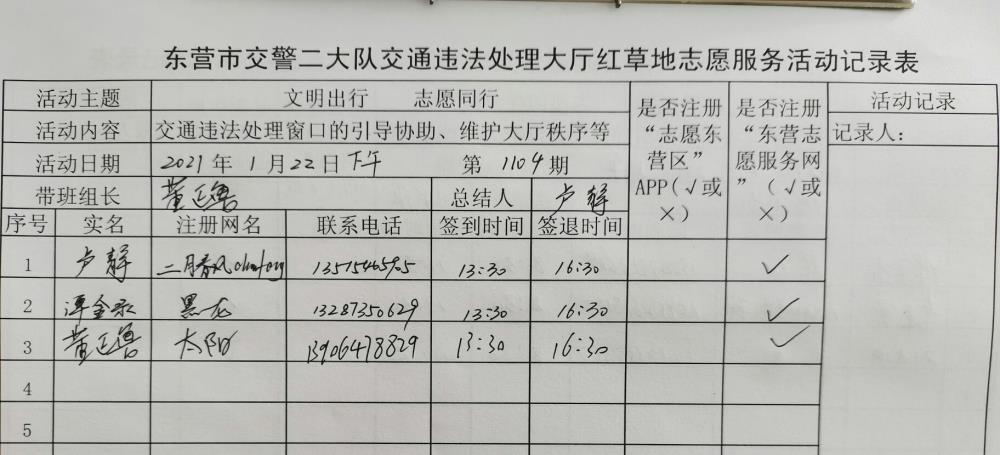 东营市交警二大队交通违法处理大厅红草地志愿服务活动记录表
活动主题 文明出行 志愿同行 是否注册“志愿东营区”APP(√或×) 是否注册“东营志愿服务网”(√或×) 活动记录
活动内容 交通违法处理窗口的引导协助、维护大厅秩序等 记录人:
活动日期 2021年1月22日下午 第1104期
带班组长 董正鲁 总结人 卢静
序号 实名 注册网名 联系电话 签到时间 签退时间
1 卢静 二月春风 13515465905 13:30 16:30 ✓
2 金 黑龙 13287350629 13:30 16:30 ✓
3 董正鲁 太阳 13906478829 13:30 16:30 ✓
4
5